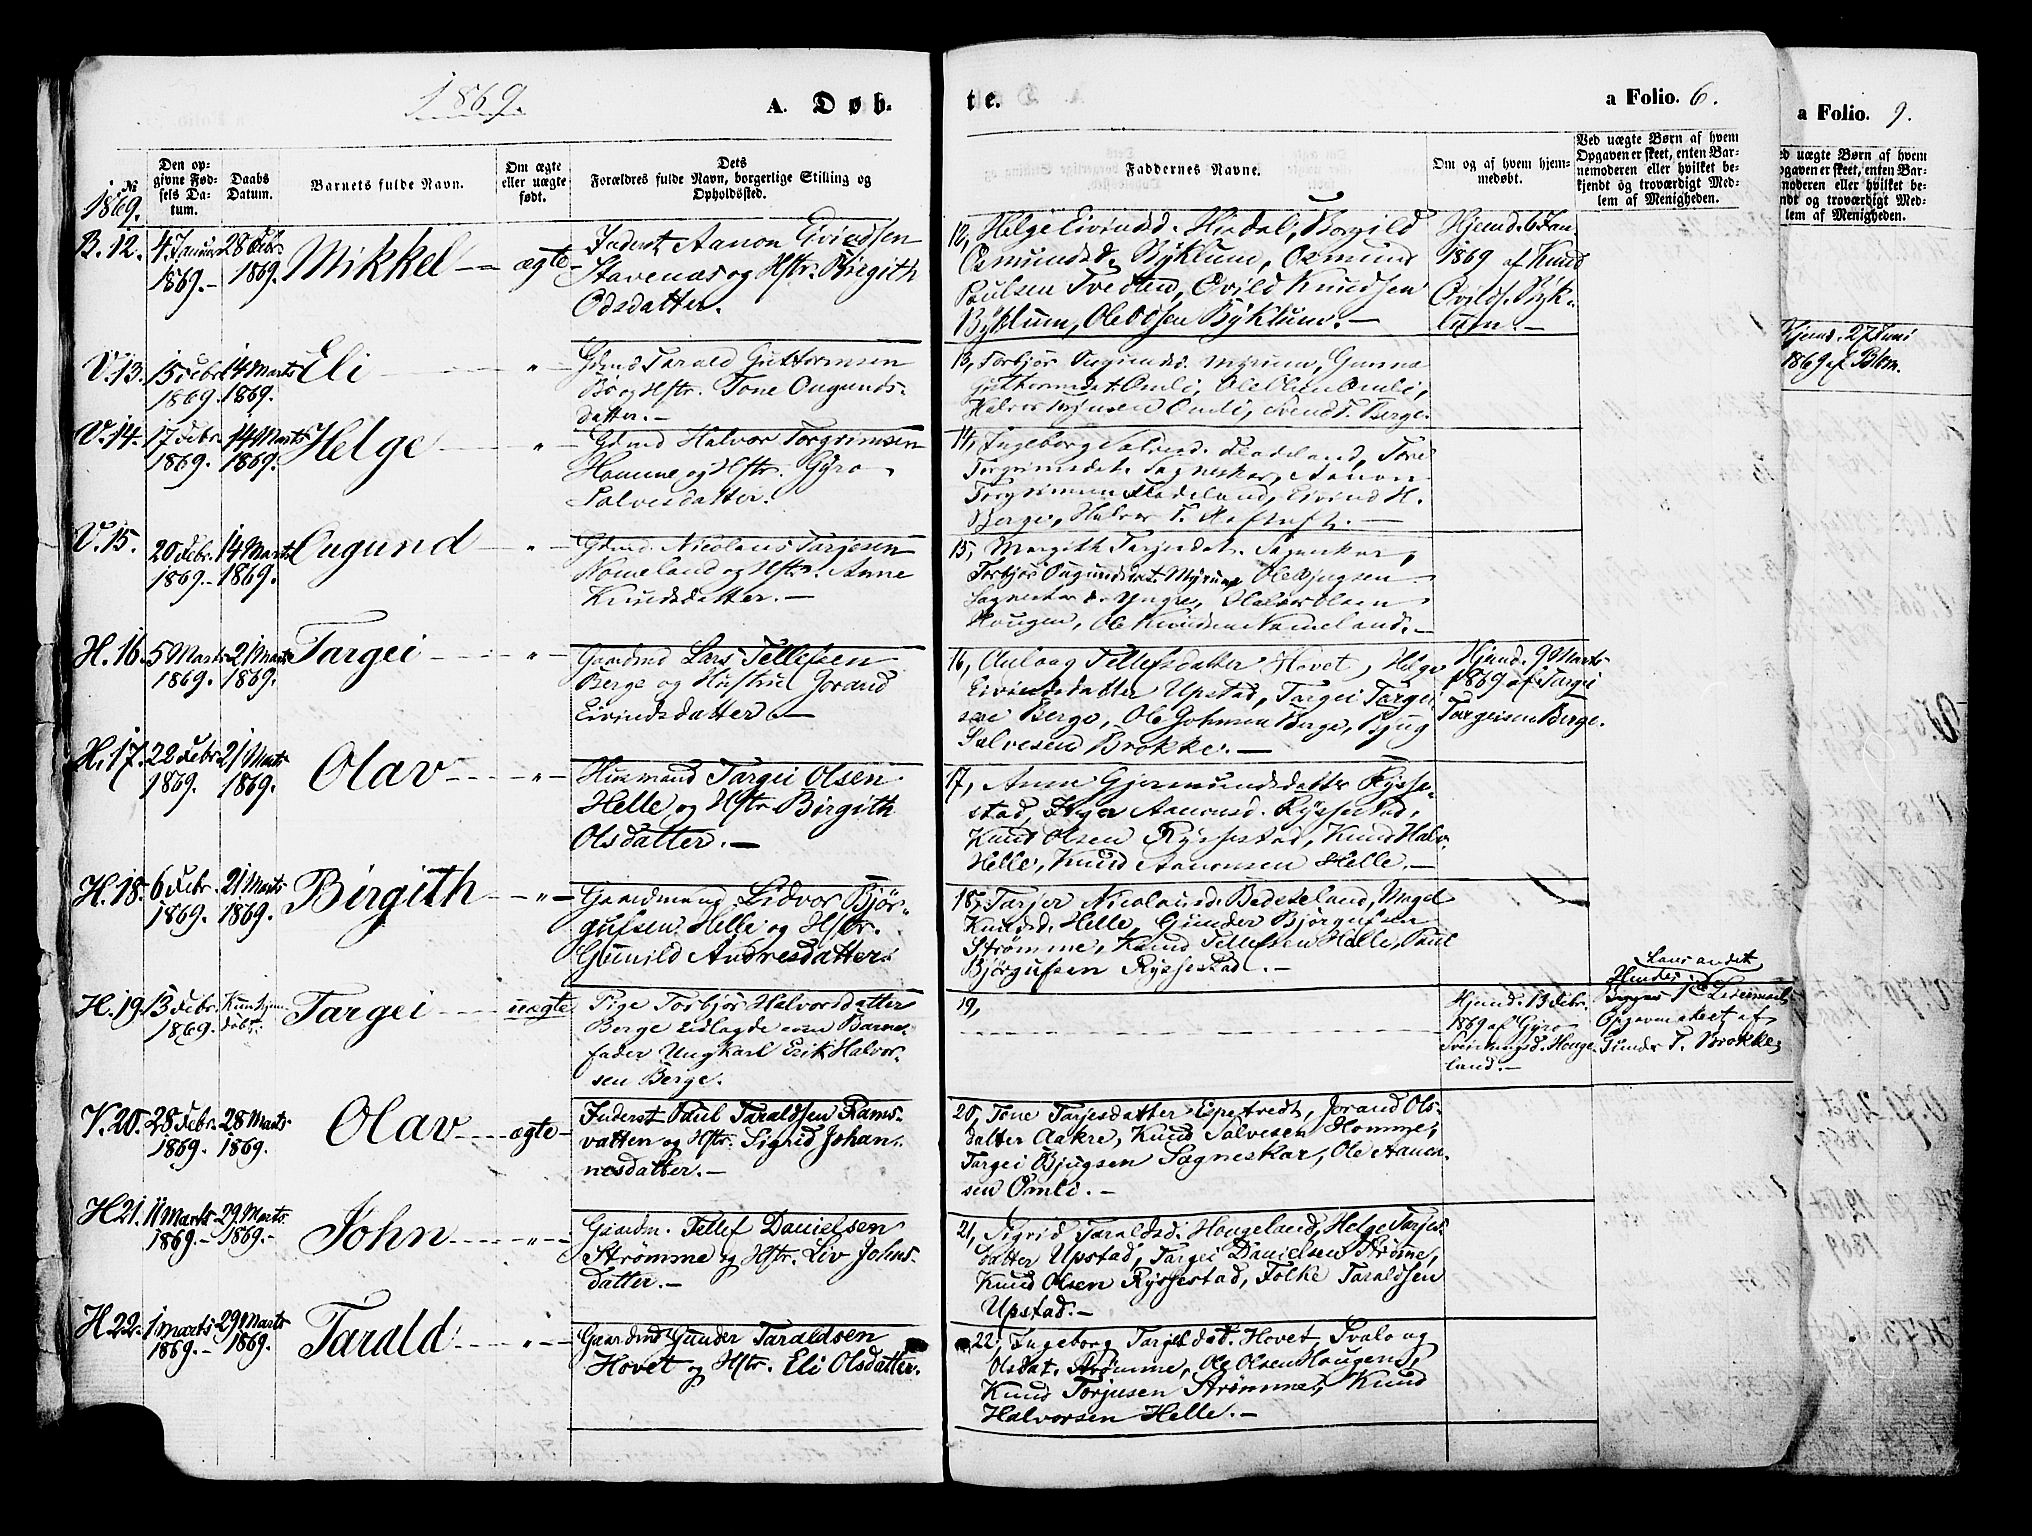 1869.
A. Døb-
te.
a Folio. 6.
a Folio. 9.
№
1869.
Den op-
givne Fød-
sels Da-
tum.
Daabs
Datum.
Barnets fulde Navn.
Om ægte
eller uægte
født.
Dets
Forældres fulde Navn, borgerlige Stilling og
Opholdssted.
Faddernes Navne.
Om og af hvem hjem-
medøbt.
Ved uægte Børn af hvem
Opgaven er skeet, enten Bar-
nemoderen eller hvilket be-
kjendt og troværdigt Med-
lem af Menigheden.
B. 12.
4 Januar
1869.-
28 Febr
1869.
Mikkel
ægte
Inderst Aanon Eivindsen
Stavenæs og Hstr. Birgith
Odsdatter.
12, Helge Eivindsd. Hisdal, Borgild
Osmundsd. Byklum, Osmund
Poulsen Tvedten, Øvild Knudsen
Byklum, Ole Odsen Byklum.-
Hjemd. 6 Jan
1869 af Knud
Øvilds. Byk-
lum.-
V. 13.
15 Febr
1869.
14 Marts
1869.
Eli
"
Gdmd Tarald Guttormsen
Bø og Hstr. Tone Ougunds-
datter.-
13, Torbjør Ougundsd. Myrum, Gunne
Guthormsdat. Omli, Ole Olsen Omli,
Halvor Torjusen Omli, Berge.
V. 14.
17 Febr
1869.
14 Marts
1869.
Helge
"
Gdmd Halvor Torgrimsen
Homme og Hstr. Gyro
Salvesdatter.
14, Ingeborg Salvesd. Fladeland, Tone
Torgrimsdat. Sagneskar, Aanon
Torgrimsen Fladeland, Eivind H.
Berge, Halvor T.
V. 15.
20 Febr.
1869.-
14 Marts
1869.
Ougund
"
Gdmd. Nicolaus Tarjesen
Nomeland og Hstr. Anne
Knudsdatter.-
15, Margith Tarjesdat. Sagneskar,
Torbjør Ougundsdat. Myrum, Ole Bjugsen
Sagneskar d. Yngre, Halvor Olsen
Hougen, Ole Knudsen Nomeland.-
H. 16.
5 Marts
1869.
21 Marts
1869.
Targei
"
Gaardmd Lars Tellefsen
Berge og Hustru Jorand
Eivindsdatter.-
16, Anlaug Tellefsdatter Hovet, Helge
Eivindsdatter Upstad, Targei Targei-
sen Berge, Ole Johnsen Berge, Bjug
Salvesen Brokke.-
Hjemd. 9 Marts
1869 af Targei
Targeisen Berge.
H. 17.
22 Febr
1869.
21 Marts
1869.
Olav
"
Husmand Targei Olsen
Helle og Hstr Birgith
Olsdatter.-
17, Anne Gjermundsdatter Rysse-
stad, Aanonsd. Ryssestad,
Knud Olsen Ryssestad, Knud Halv.
Helle, Knud Aanonsen Helle.-
H. 18.
6 Febr.
1869.
21 Marts
1869.
Birgith
"
Gaardmand Lidvor Bjør-
gulsen Helle og Hstr.
Gunild Andresdatter.
18, Tarjer Nicolausd. Besteland, Margit
Knudsd. Helle, Gunder Bjørgulsen
Strømme, Knud Tellefsen Helle, Paul
Bjørgufsen Ryssestad.-
H. 19.
13 Febr.
1869.
Kun hjem
døbt.
Targei
uægte
Pige Torbjør Halvorsdatter
Berge udlagde som Barne-
fader Ungkarl Erik Halvor-
sen Berge.
19,
Hjemd. 13 Febr.
1869 af Gyro
Sveinungsd. Houge-
land.-
Hendes
hans andet
Begges 1ste Leiermaal
Opgave skeet af
Gunder T. Brokke
V. 20.
28 Febr
1869.
28 Marts
1869.
Olav
ægte
Inderst Paul Taraldsen Rams-
vatten og Hstr. Sigrid Johan-
nesdatter.-
20, Tone Tarjesdatter Espetvedt, Jorand Ols-
datter Aakre, Knud Salvesen Homme,
Targei Bjugsen Sagneskar, Ole Aanon-
sen Omli.-
H 21.
11 Marts
1869.-
29 Marts
1869.-
John
"
Gaardm. Tellef Danielsen
Strømme og Hstr. Liv Johns-
datter.-
21, Sigrid Taraldsd. Hougeland, Helge Tarjes-
datter Upstad, Targei Danielsen Strøme,
Knud Olsen Ryssestad, Folke Taraldsen
Upstad.-
H 22.
1 Marts
1869.-
29 Marts
1869.
Tarald
"
Gaardmd Gunder Taraldsen
Hovet og Hstr. Eli Olsdatter.
22, Ingeborg Targeisdat. Hovet, Svalo og
Olsdat. Strømme, Ole Olsen Hougen,
Knud Torjusen Strømme, Knud
Halvorsen Helle.-
Ved uægte Børn af hvem
pgaven er skeet, enten Bar-
moderen eller hvilket be-
ndt og troværdigt Med-
lem af Menigheden.
Hjemd. 27 Juni
1869 af Blom.